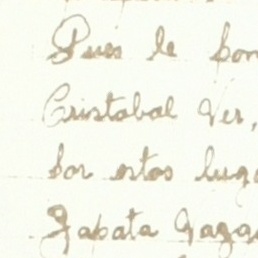 Pues le con
Cristobal Ver,
por estos luga
Zapata Gaga